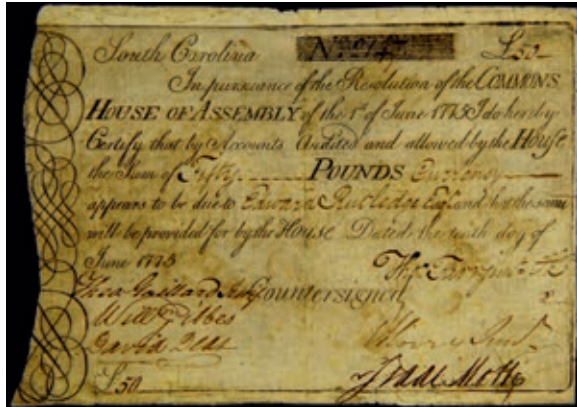 South Carolina No. £50
In pursuance of the Resolution of the COMMONS
HOUSE OF ASSEMBLY of the 1st of June 1775 I do hereby
Certify that by Accounts Audited and allowed by the House
the Sum of Fifty POUNDS Currency
appears to be due to Edward Rutledge Esq and that the same
will be provided for by the House Dated the tenth day of
June 1775
Theo Gaillard Countersigned
Will Gibbes
David
£50 Isaac Motte